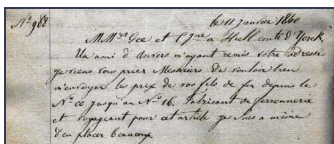 Nº 988 le 11 Janvier 1860
M. Mrs Gee et Cgnie à Hull comté d'York
Un ami d'Anvers m'ayant remis votre adresse
je viens vous prier Messieurs de vouloir bien
m'envoyer le prix de vos fils de fer depuis le
Nº 00 jusqu'au Nº 16. Fabricant de ferronnerie
et voyageant pour cet article je suis à même
d'en placer beaucoup